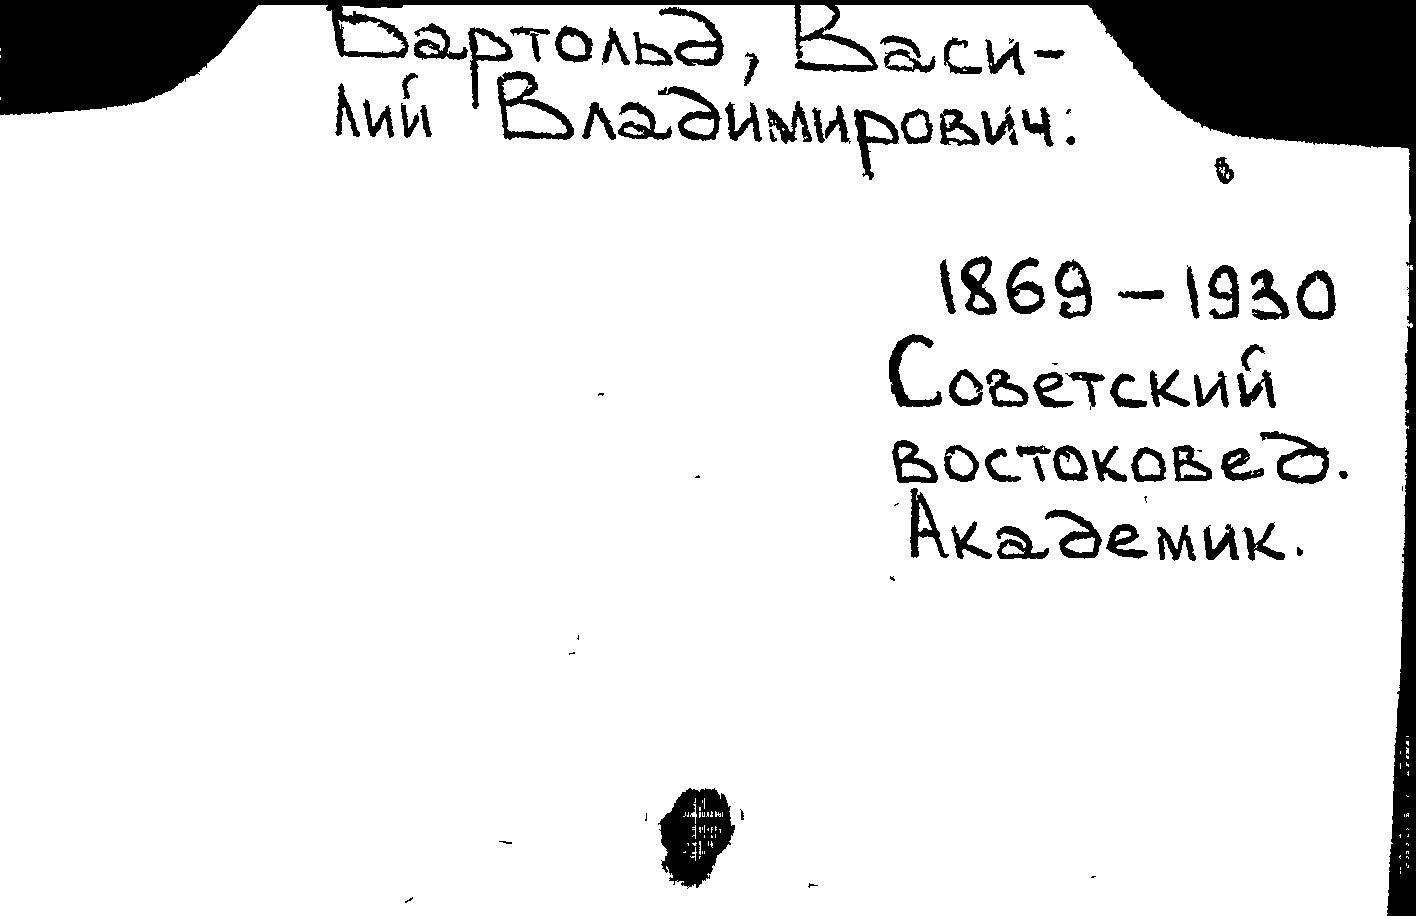 Бартольд, Васи-
лий Владимирович.
1869 – 1930
Советский
востоковед.
Академик.